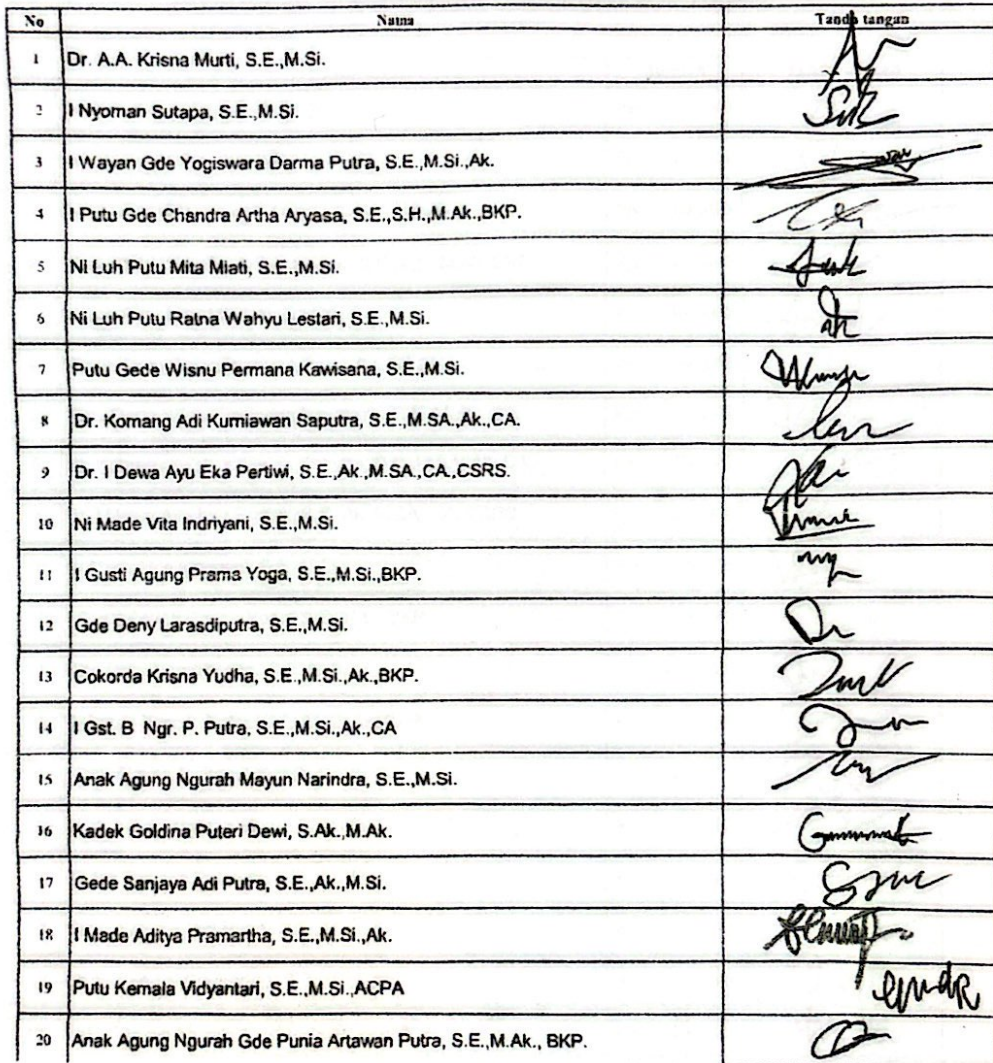 No Nama Tanda tangan
1 Dr. A.A. Krisna Murti, S.E.,M.Si.
2 I Nyoman Sutapa, S.E.,M.Si.
3 I Wayan Gde Yogiswara Darma Putra, S.E.,M.Si.,Ak.
4 I Putu Gde Chandra Artha Aryasa, S.E.,S.H.,M.Ak.,BKP.
5 Ni Luh Putu Mita Miati, S.E.,M.Si.
6 Ni Luh Putu Ratna Wahyu Lestari, S.E.,M.Si.
7 Putu Gede Wisnu Permana Kawisana, S.E.,M.Si.
8 Dr. Komang Adi Kurniawan Saputra, S.E.,M.SA.,Ak.,CA.
9 Dr. I Dewa Ayu Eka Pertiwi, S.E.,Ak.,M.SA.,CA.,CSRS.
10 Ni Made Vita Indriyani, S.E.,M.Si.
11 I Gusti Agung Prama Yoga, S.E.,M.Si.,BKP.
12 Gde Deny Larasdiputra, S.E.,M.Si.
13 Cokorda Krisna Yudha, S.E.,M.Si.,Ak.,BKP.
14 I Gst. B Ngr. P. Putra, S.E.,M.Si.,Ak.,CA
15 Anak Agung Ngurah Mayun Narindra, S.E.,M.Si.
16 Kadek Goldina Puteri Dewi, S.Ak.,M.Ak.
17 Gede Sanjaya Adi Putra, S.E.,Ak.,M.Si.
18 I Made Aditya Pramartha, S.E.,M.Si.,Ak.
19 Putu Kemala Vidyantari, S.E.,M.Si.,ACPA
20 Anak Agung Ngurah Gde Punia Artawan Putra, S.E.,M.Ak., BKP.